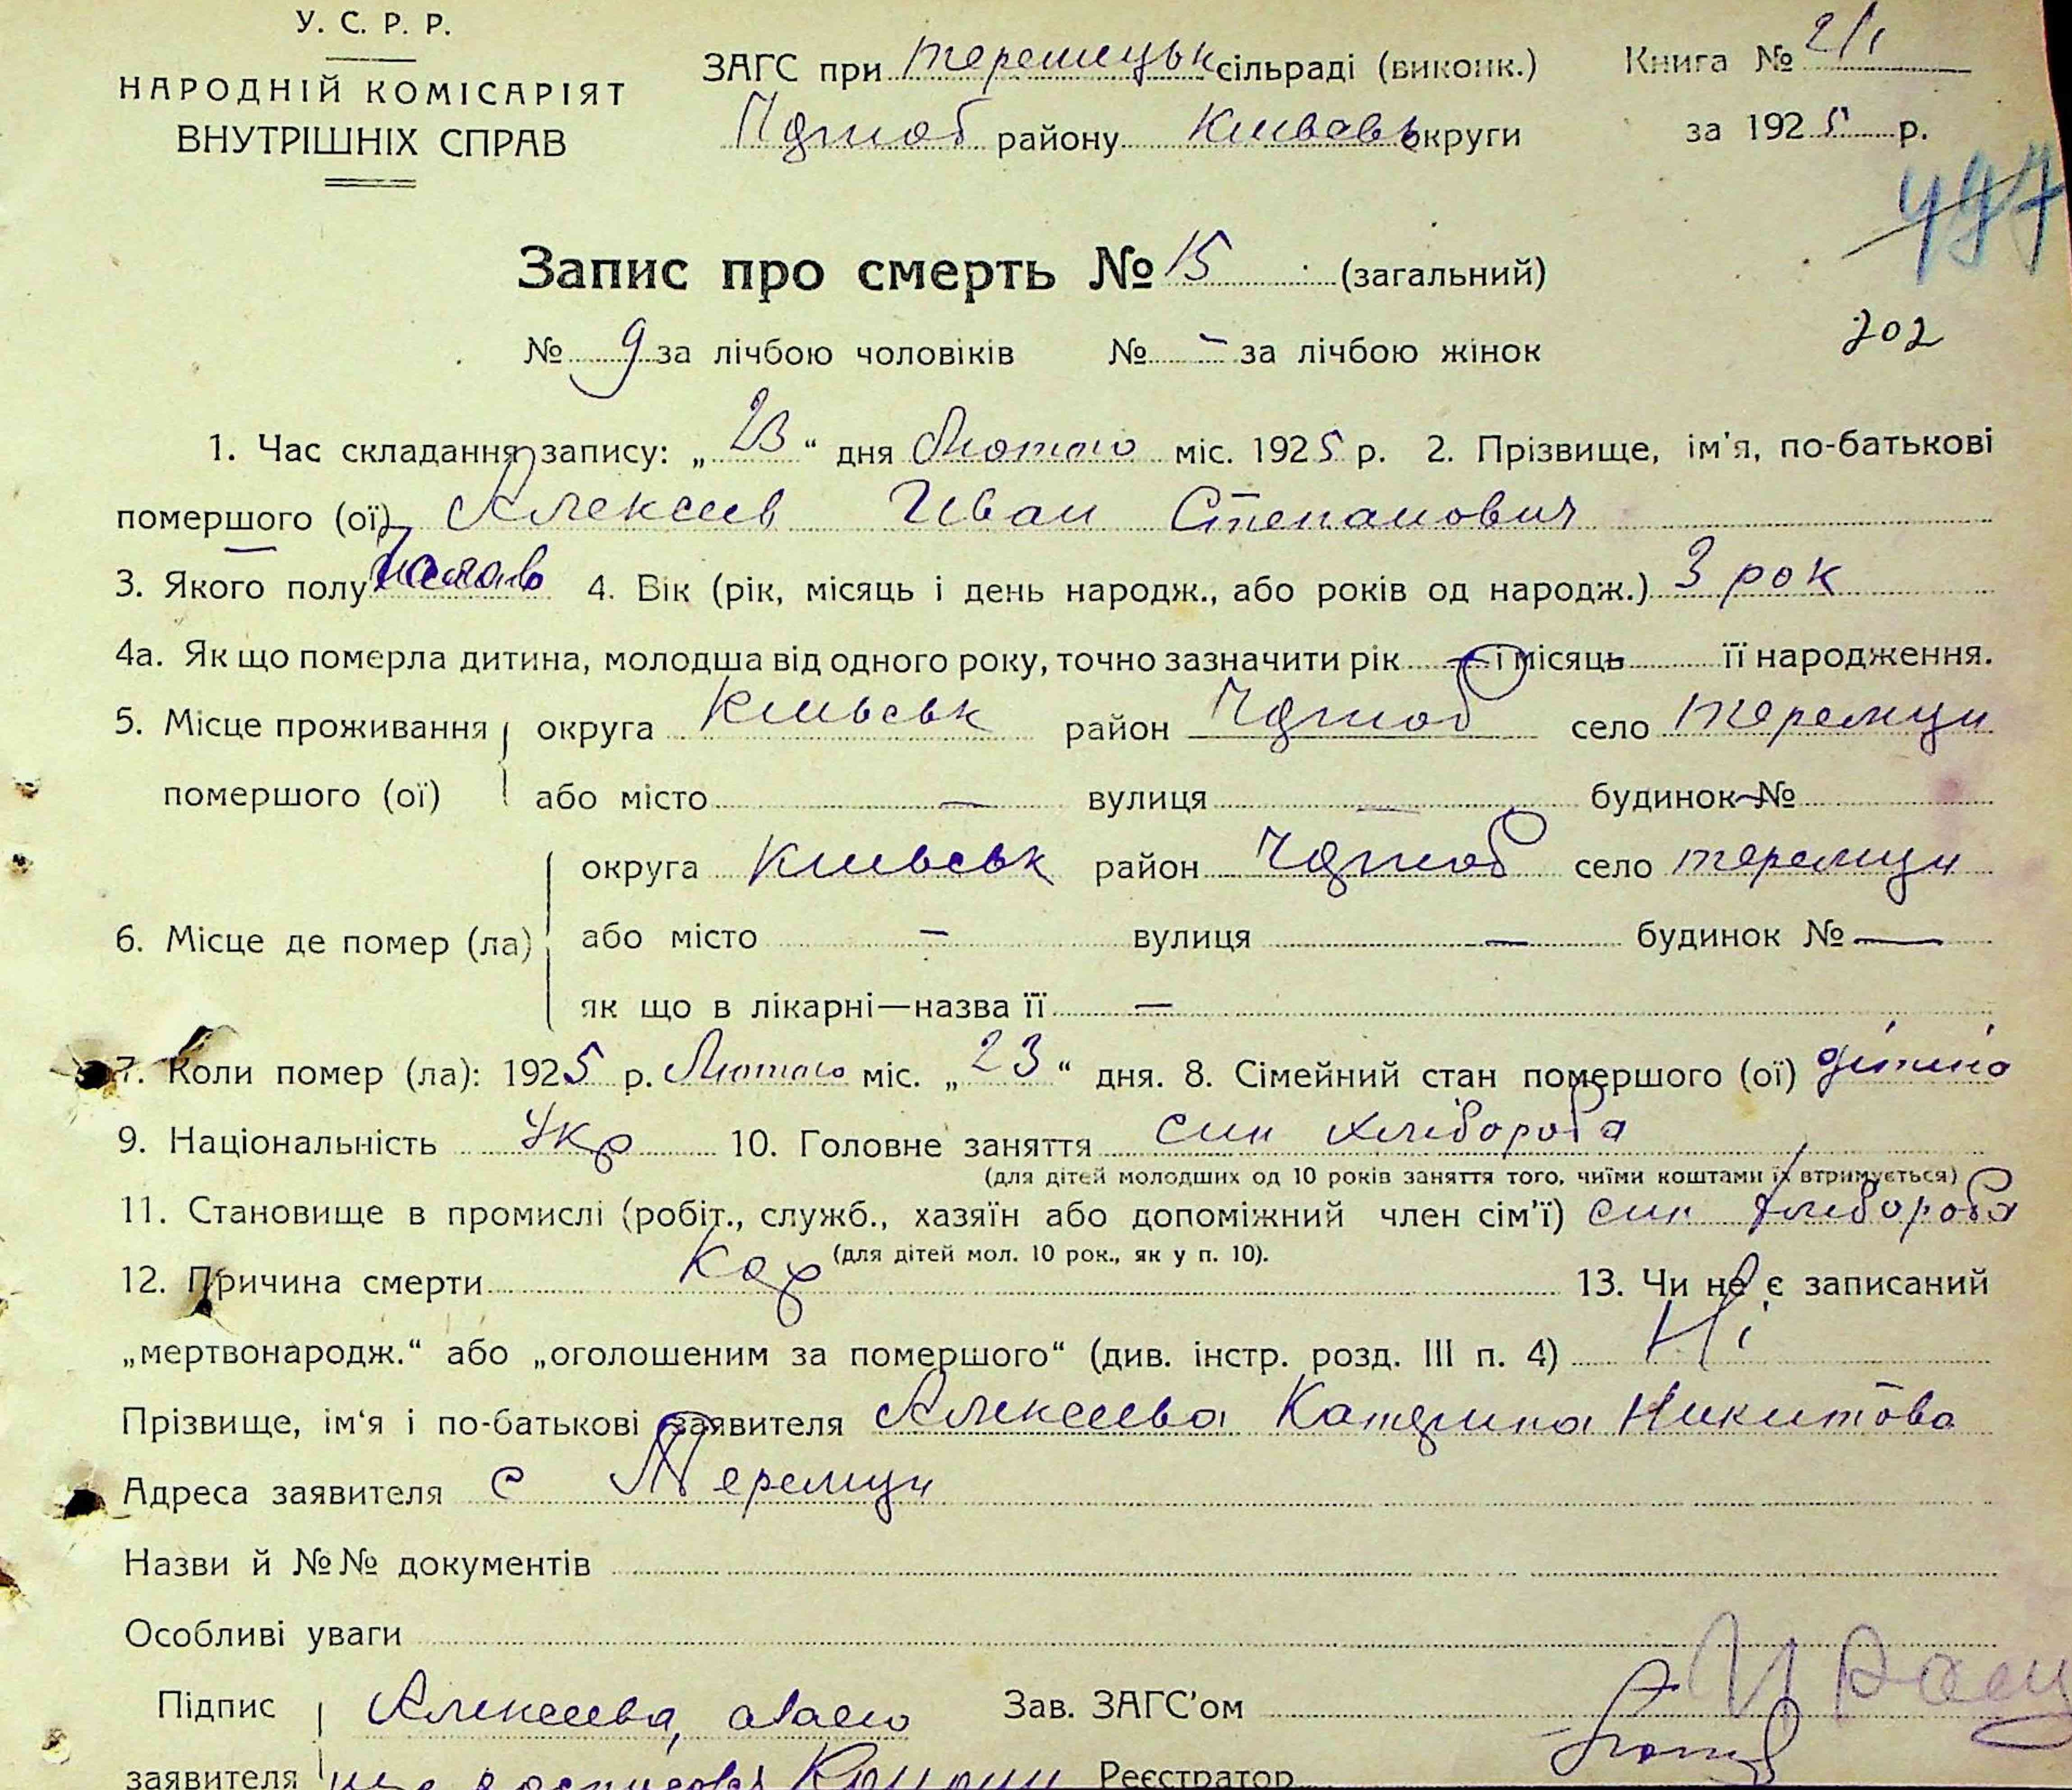 У. С. Р. Р.
НАРОДНІЙ КОМІСАРІЯТ
ВНУТРІШНІХ СПРАВ
ЗАГС при теремецьк сільраді (виконк.)
району округи
Книга № 2/1
за 1925 р.
497
202
Запис про смерть № 15 (загальний)
№ 9 за лічбою чоловіків № – за лічбою жінок
1. Час складання запису: „23“ дня Лютого міс. 1925 р. 2. Прізвище, ім'я, по-батькові
помершого (ої) Алексеев Иван Степанович
3. Якого полу 4. Вік (рік, місяць і день народж., або років од народж.) 3 рок
4а. Як що померла дитина, молодша від одного року, точно зазначити рік — і місяць її народження.
5. Місце проживання округа Київськ район село Теремци
помершого (ої) або місто — вулиця — будинок №
округа Київськ район село теремци
6. Місце де помер (ла) або місто – вулиця — будинок № —
як що в лікарні—назва її —
7. Коли помер (ла): 1925 р. Лютого міс. „23“ дня. 8. Сімейний стан помершого (ої) дітина
9. Національність Укр 10. Головне заняття син хлібороба
(для дітей молодших од 10 років заняття того, чиїми коштами їх втримується)
11. Становище в промислі (робіт., служб., хазяїн або допоміжний член сім'ї) син хлібороба
(для дітей мол. 10 рок., як у п. 10).
12. Причина смерти Кор 13. Чи не є записаний
„мертвонародж.“ або „оголошеним за помершого“ (див. інстр. розд. III п. 4) Ні
Прізвище, ім'я і по-батькові заявителя Алексеева Катерина Никитова
Адреса заявителя с Теремци
Назви й №№ документів
Особливі уваги
Підпис Алексеева, Зав. ЗАГС'ом
заявителя Реєстратор